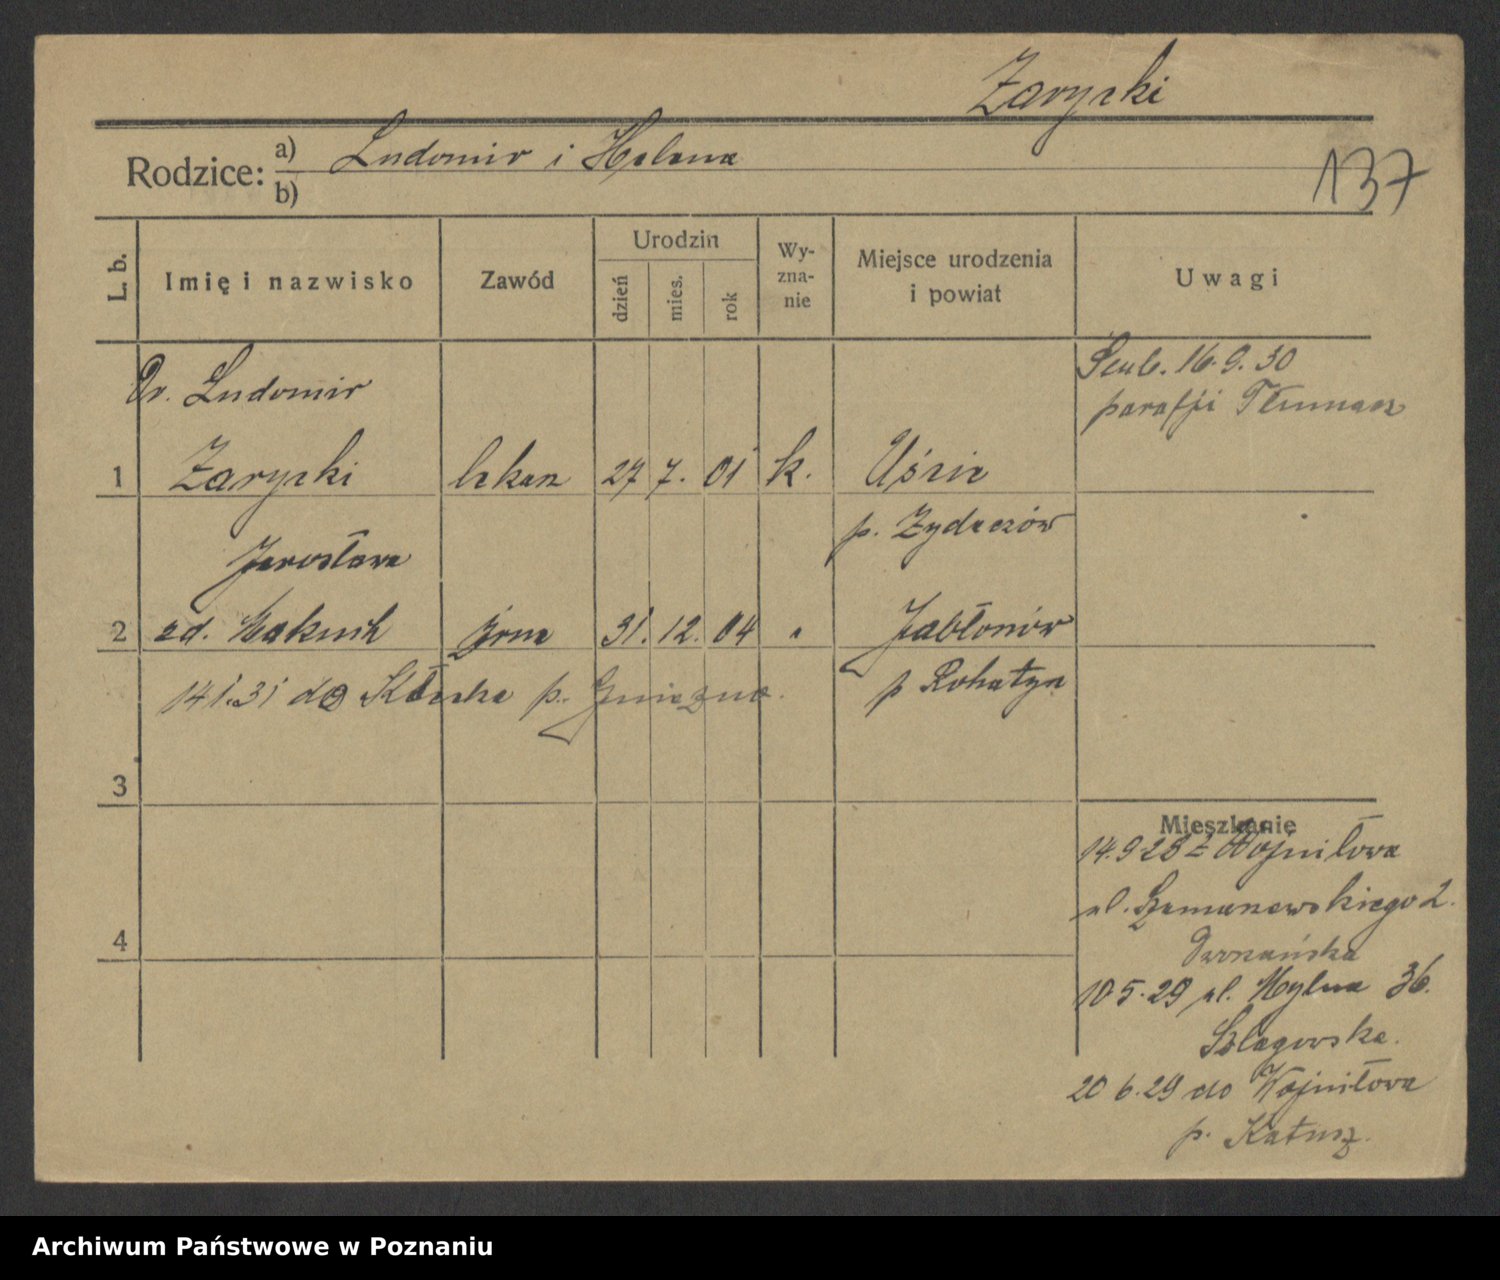 Zarycki
Rodzice: a) Ludomir i Helena
b)
137
L. b.
Imię i nazwisko
Zawód
Urodzin
dzień
mies.
rok
Wy-
zna-
nie
Miejsce urodzenia
i powiat
Uwagi
Dr. Ludomir
Ślub. 16.9.30
parafji Tłumacz
1 Zarycki lekarz 27 7. 01 k. Uście
p. Żydaczów
Jarosława
2 zd. Makuch żona 31. 12. 04 " Jabłonów
14 1.31 do Kłecka p. Gniezno.
p Rohatyn
3
Mieszkanie
14.9 28 z Wojniłowa
4
ul. 2.
10.5.29 ul. Mylna 36.
20 6.29 do Wojniłowa
p. Kałusz.
Archiwum Państwowe w Poznaniu